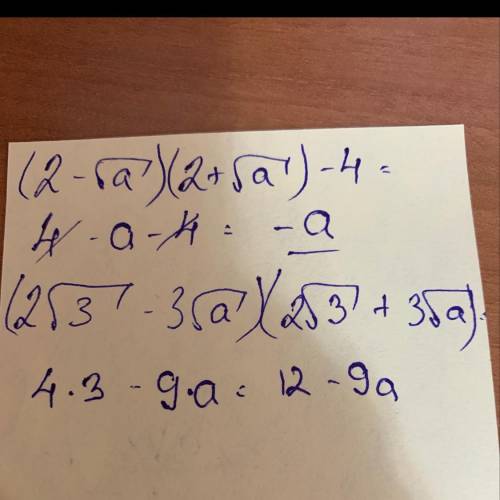 (2-√a)(2+√a)-4=
4-a-4=-a
(2√3-3√a)(2√3+3√a)=
4·3-9·a=12-9a